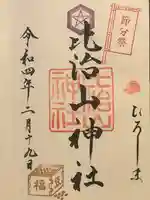 節分祭
ひろしま
比治山神社
令和四年二月十九日
福